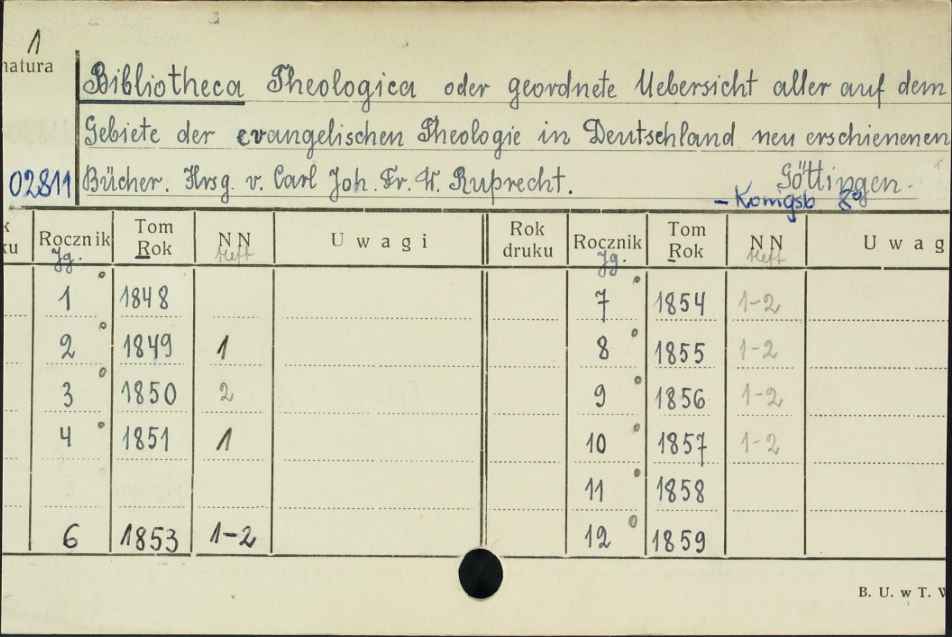 1
natura
Bibliotheca Theologica oder geordnete Uebersicht aller auf dem
Gebiete der evangelischen Theologie in Deutschland neu erschienenen
02811 Bücher. Hrsg. v. Carl Joh. Fr. W. Ruprecht. Göttingen.
– Komigsb 8º
k ku Rocznik Jg. Tom Rok NN Heft Uwagi Rok druku Rocznik Jg. Tom Rok NN Heft Uwag
1 º 1848 7 º 1854 1-2
2 º 1849 1 8 º 1855 1-2
3 º 1850 2 9 º 1856 1-2
4 º 1851 1 10 º 1857 1-2
11 º 1858
6 1853 1-2 12 º 1859
B. U. w T. W